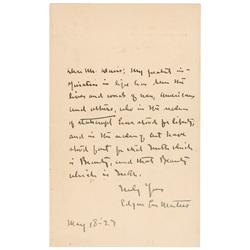 Dear Mr. Davis: My greatest in-
spiration in life has been the
lives and words of men, Americans
and others, who in the realm
of statecraft have stood for liberty;
and in the realm of art have
stood for that Truth which
is Beauty, and that Beauty
which is Truth.
Truly Yours
Edgar Lee Masters
May 18-27